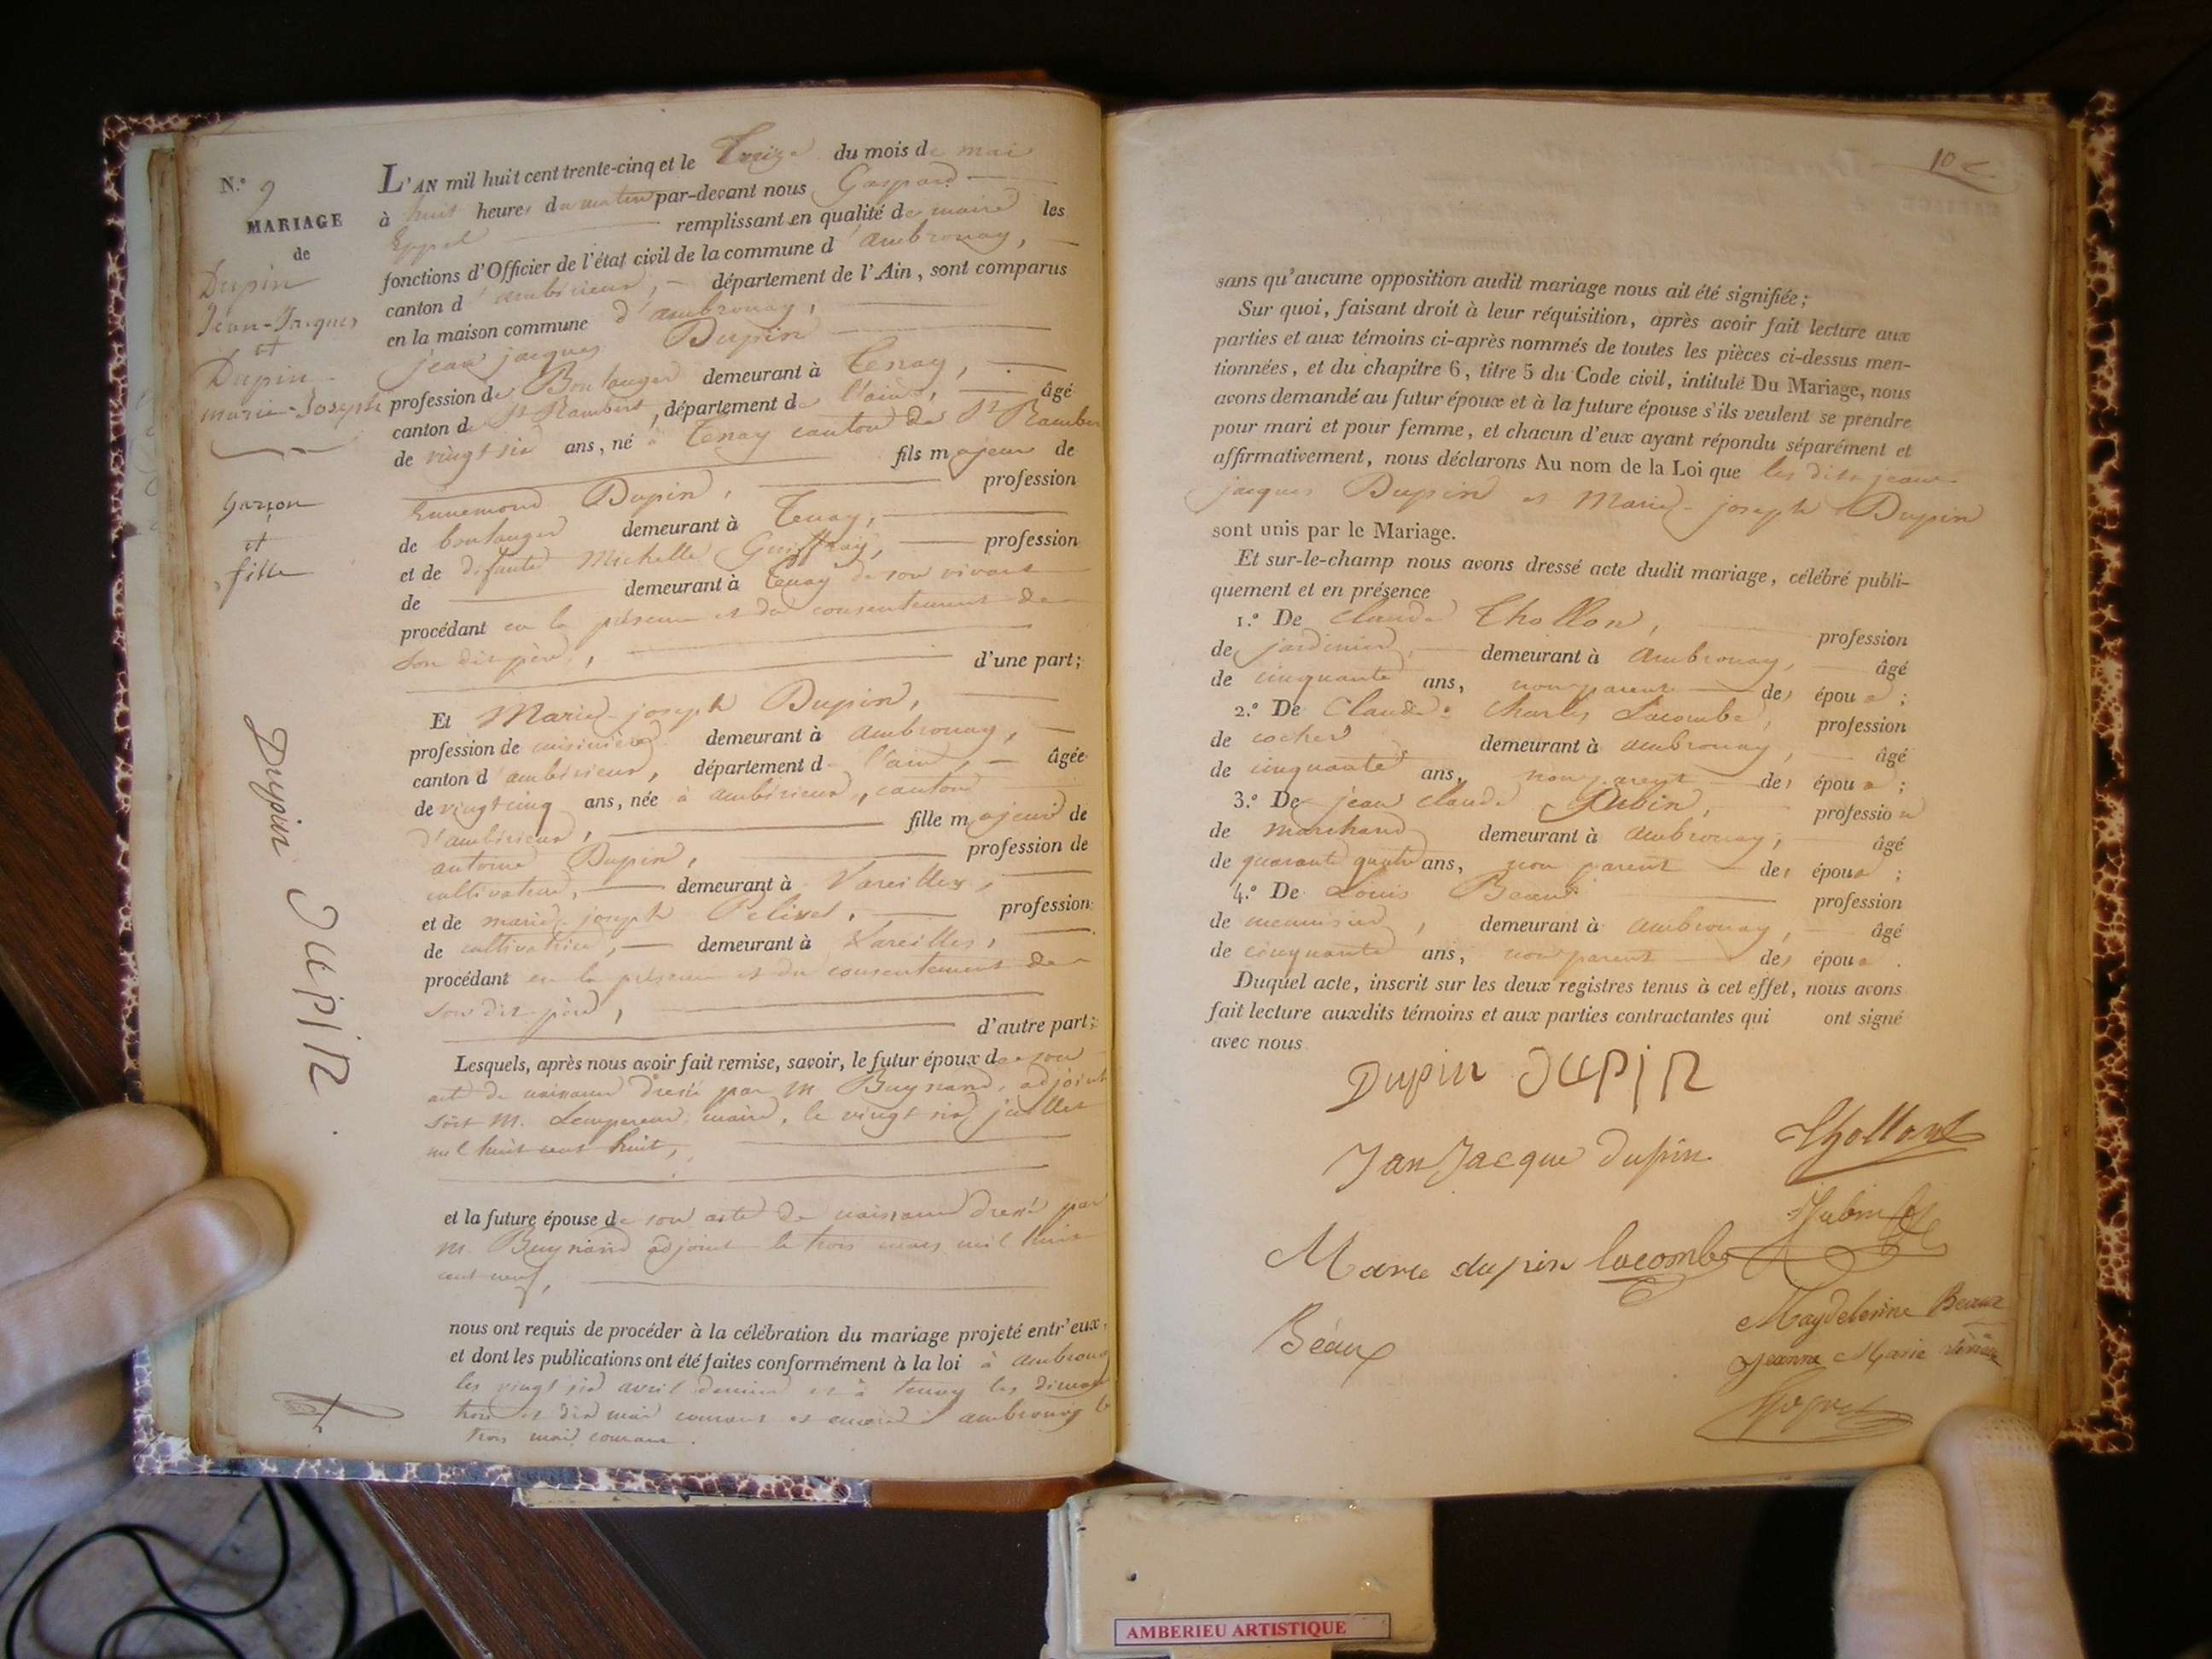 N.° 9
MARIAGE
de
Dupin
Jean-Jacques
et
Dupin
marie-Joseph
Garçon
et
fille
Dupin Dupin
L'AN mil huit cent trente-cinq et le Treize du mois de mai
à huit heures du matin par-devant nous Gaspard
Eppel remplissant en qualité de maire les
fonctions d'Officier de l'état civil de la commune d'ambronay,
canton d'ambérieux, département de l'Ain, sont comparus
en la maison commune d'ambronay,
jean jacques Dupin
profession de Boulanger demeurant à Tenay,
canton de St Rambert, département de l'ain, âgé
de vingt six ans, né à Tenay canton de St Rambert
fils majeur de
Ennemond Dupin, profession
de boulanger demeurant à Tenay,
et de défunte Michelle Guiffray, profession
de demeurant à Tenay de son vivant
procédant en la présence et du consentement de
son dit père, d'une part;
Et Marie-joseph Dupin,
profession de cuisinière demeurant à ambronay,
canton d'ambérieux, département de l'ain, âgée
de vingt cinq ans, née à ambérieux, canton
d'ambérieux, fille majeure de
antoine Dupin, profession de
cultivateur, demeurant à Vareilles,
et de marie-joseph Pelisset, profession
de cultivatrice, demeurant à Vareilles,
procédant en la présence et du consentement de
son dit père, d'autre part;
Lesquels, après nous avoir fait remise, savoir, le futur époux de son
acte de naissance dressé par M. Buynand, adjoint
M. Lempereur maire, le vingt six juillet
mil huit cent huit,
et la future épouse de son acte de naissance dressé par
M. Buynand adjoint le trois mars mil huit
cent neuf,
nous ont requis de procéder à la célébration du mariage projeté entr'eux,
et dont les publications ont été faites conformément à la loi à ambronay
les vingt six avril dernier et à tenay les dimanches
trois et dix mai courant et encore à ambronay le
trois mai courant.
10
sans qu'aucune opposition audit mariage nous ait été signifiée;
Sur quoi, faisant droit à leur réquisition, après avoir fait lecture aux
parties et aux témoins ci-après nommés de toutes les pièces ci-dessus men-
tionnées, et du chapitre 6, titre 5 du Code civil, intitulé Du Mariage, nous
avons demandé au futur époux et à la future épouse s'ils veulent se prendre
pour mari et pour femme, et chacun d'eux ayant répondu séparément et
affirmativement, nous déclarons Au nom de la Loi que les dits jean
jacques Dupin et Marie-joseph Dupin
sont unis par le Mariage.
Et sur-le-champ nous avons dressé acte dudit mariage, célébré publi-
quement et en présence
1.° De Claude Thollon, profession
de jardinier, demeurant à ambronay, âgé
de cinquante ans, non parent des époux;
2.° De Claude Charles Lacombe, profession
de cocher demeurant à ambronay, âgé
de cinquante ans, non parent des époux;
3.° De jean claude Jubin, profession
de marchand demeurant à ambronay, âgé
de quarante quatre ans, non parent des époux;
4.° De Louis Beaux profession
de menuisier, demeurant à ambronay, âgé
de cinquante ans, non parent des époux.
Duquel acte, inscrit sur les deux registres tenus à cet effet, nous avons
fait lecture auxdits témoins et aux parties contractantes qui ont signé
avec nous
Dupin Dupin
Jan Jacque dupin Thollont
Jubin
Marie dupin lacombe
Magdeleine Beaux
Beaux
Jeanne Marie
AMBERIEU ARTISTIQUE